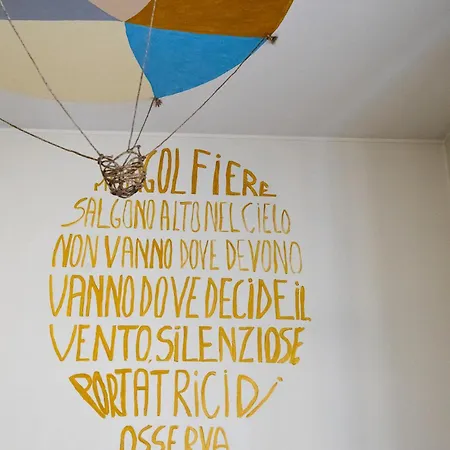 SALGONO ALTO NEL CIELO
NON VANNO DOVE DEVONO
VANNO DOVE DECIDE IL
VENTO, SILENZIOSE
PORTATRICI DI
OSSERVA